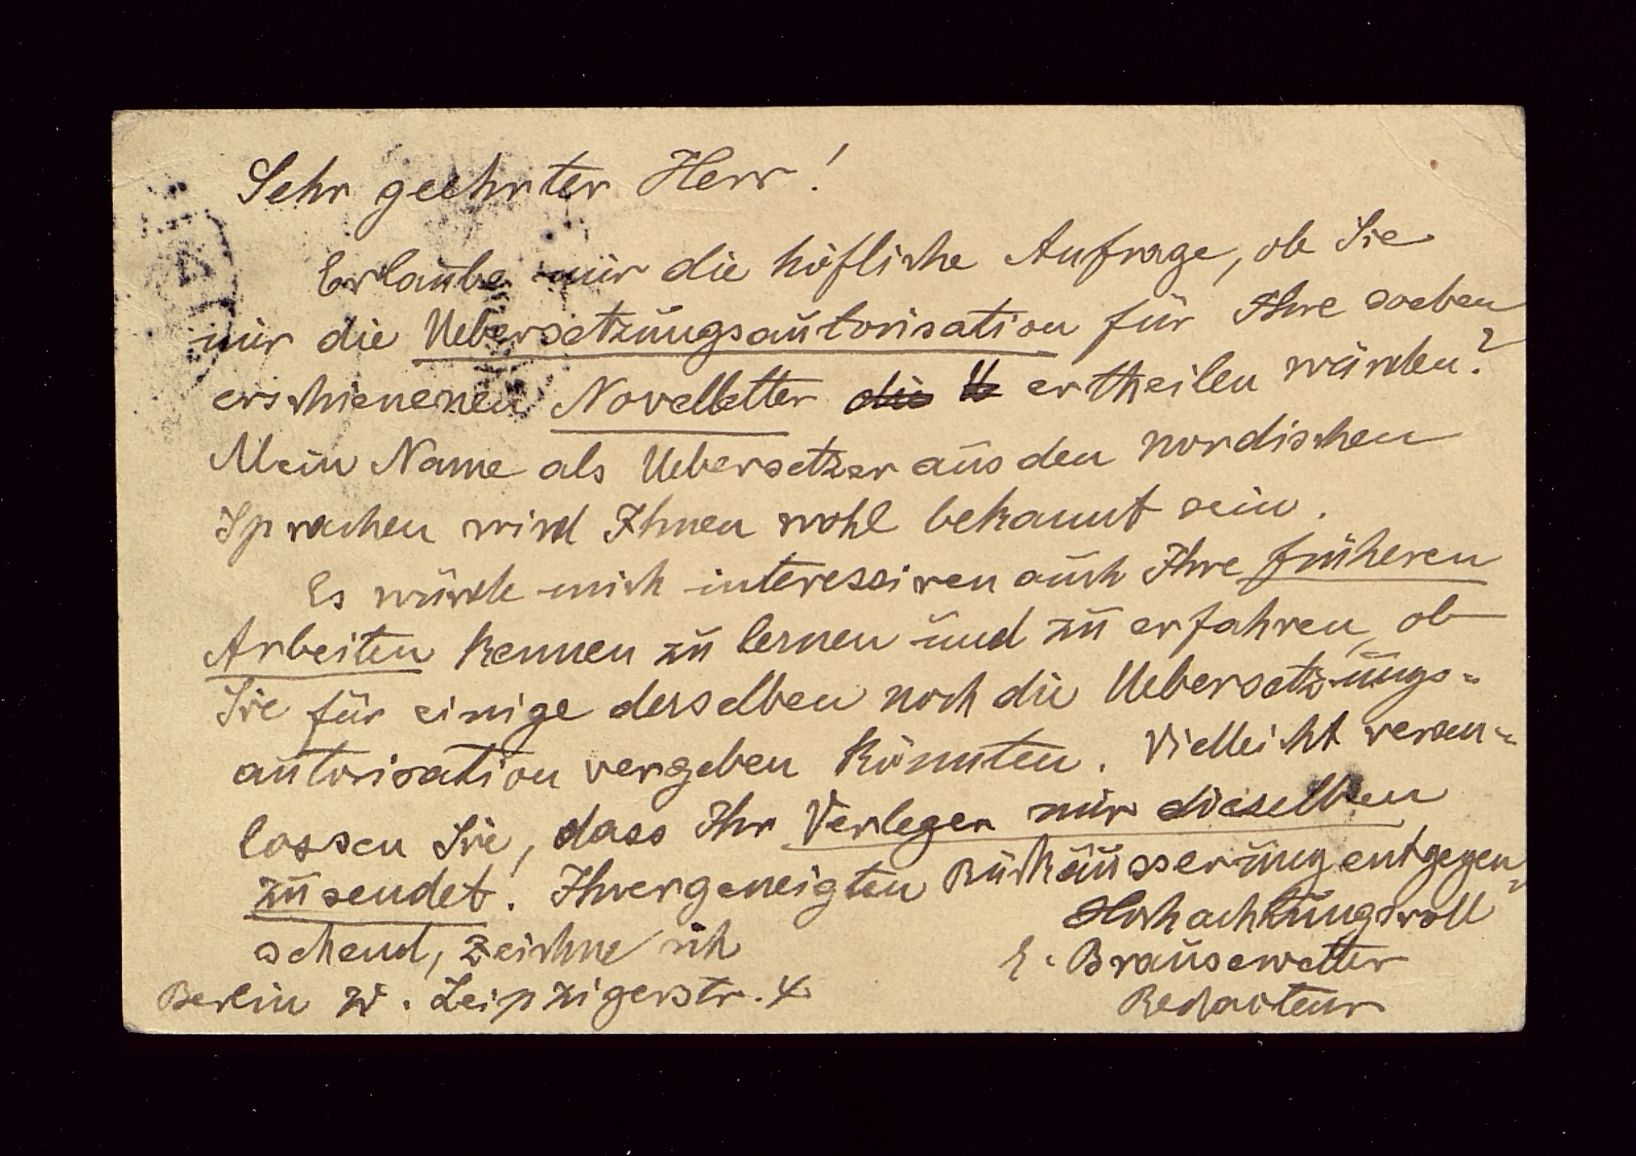 Sehr geehrter Herr!
Erlaube mir die höfliche Anfrage, ob Sie
mir die Uebersetzungsautorisation für Ihre soeben
erschienenen Novelletter die U ertheilen würden?
Mein Name als Uebersetzer aus den nordischen
Sprachen wird Ihnen wohl bekannt sein.
Es würde mich interessiren auch Ihre früheren
Arbeiten kennen zu lernen und zu erfahren, ob
Sie für einige derselben noch die Uebersetzungs-
autorisation vergeben könnten. Vielleicht veran-
lassen Sie, dass Ihr Verleger mir dieselben
zusendet. Ihrer geneigten Rückäusserung entgegen-
sehend, zeichne ich
Hochachtungsvoll
E. Brausewetter
Redacteur
Berlin W. Leipzigerstr. 4.